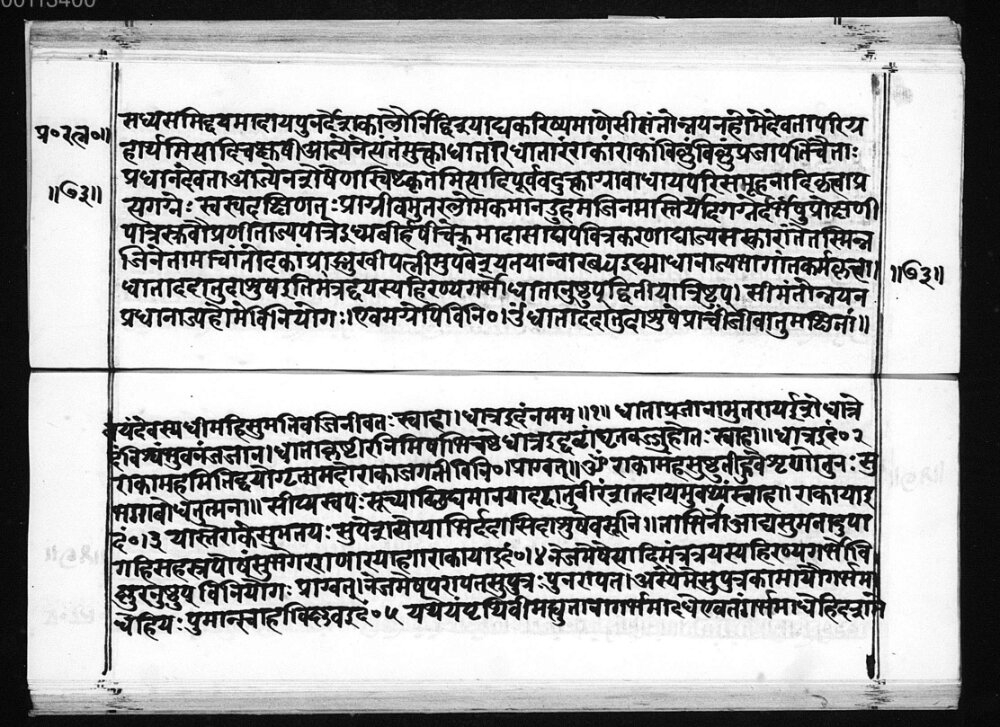 00113400
प्र॰रत्न॰॥
॥७३॥
सध्यसमिद्द्वयमादाय पुनर्देशकालौ निर्दिश्याद्य करिष्यमाणे सीमंतोन्नयनहोमे देवतापरिग्र
हार्थमित्यादिचक्षुषी आज्येनेत्यंतमुक्त्वा धातारं धातारं राकां राकां विष्णुं विष्णुं प्रजापतिं चैताः
प्रधानदेवता आज्येन शेषेण स्विष्टकृतमित्यादिपूर्ववदुक्त्वाग्नावाधाय परिसमूहनादि कृत्वा प्र
त्यगग्नेः स्वस्य दक्षिणतः प्राग्ग्रीवमुत्तरलोमकमानडुहमजिनमास्तीर्य
पात्रस्रुवौ प्रणीताज्यपात्रे इध्माबर्हिषी चक्रमादासाद्य पवित्रकरणाद्याज्यसंस्कारांते तस्मिन्न
जिने तामाचांतोदकां प्राङ्मुखीं पत्नीमुपवेश्य तयान्वारब्ध इध्माधानाज्यभागांतकर्म कृत्वा।
॥७३॥
धाता ददातु दाशुष इति मंत्रद्वयस्य हिरण्यगर्भो धातानुष्टुप् द्वितीया त्रिष्टुप्। सीमंतोन्नयन
प्रधानाज्यहोमे विनियोगः। एवमग्रेपि विनि॰। ॐ धाता ददातु दाशुषे प्राचीं जीवातुमक्षितां॥
वयं देवस्य धीमहि सुमतिं वाजिनीवतः स्वाहा। धात्र इदं न मम॥१॥ धाता प्रजानामुत राय ईशे धात्रे
दं विश्वं भुवनं जजान। धाता कृष्टीरनिमिषाभिचष्टे धात्र इद्धव्यं घृतवज्जुहोत स्वाहा॥ धात्र इदं॰२
राकामहमिति द्वयोर्गृत्समदो राका जगती विनि॰। प्राग्वत्॥ ॐ राकामहं सुहवां सुष्टुती हुवे शृणोतु नः सु
भगा बोधतु त्मना॥ सीव्यत्वपः सूच्याछिद्यमानया ददातु वीरं शतदायमुक्थ्यं स्वाहा॥ राकाया इ
दं॰।३ यास्ते राके सुमतयः सुपेशसो याभिर्ददासि दाशुषे वसूनि॥ ताभिर्नो अद्य सुमना उपा
गहि सहस्रपोषं सुभगे रराणा स्वाहा। राकाया इदं॰।४ नेजमेषेत्यादिमंत्रत्रयस्य हिरण्यगर्भो वि
ष्णुरनुष्टुप् विनियोगः प्राग्वत्। नेजमेष परापत सुपुत्रः पुनरापत। अस्यै मे पुत्रकामायै गर्भमा
धेहि यः पुमान्स्वाहा। विष्णव इदं॰५ यथेयं पृथिवी मह्युत्ताना गर्भमादधे एवं तं गर्भमाधेहि दशमे